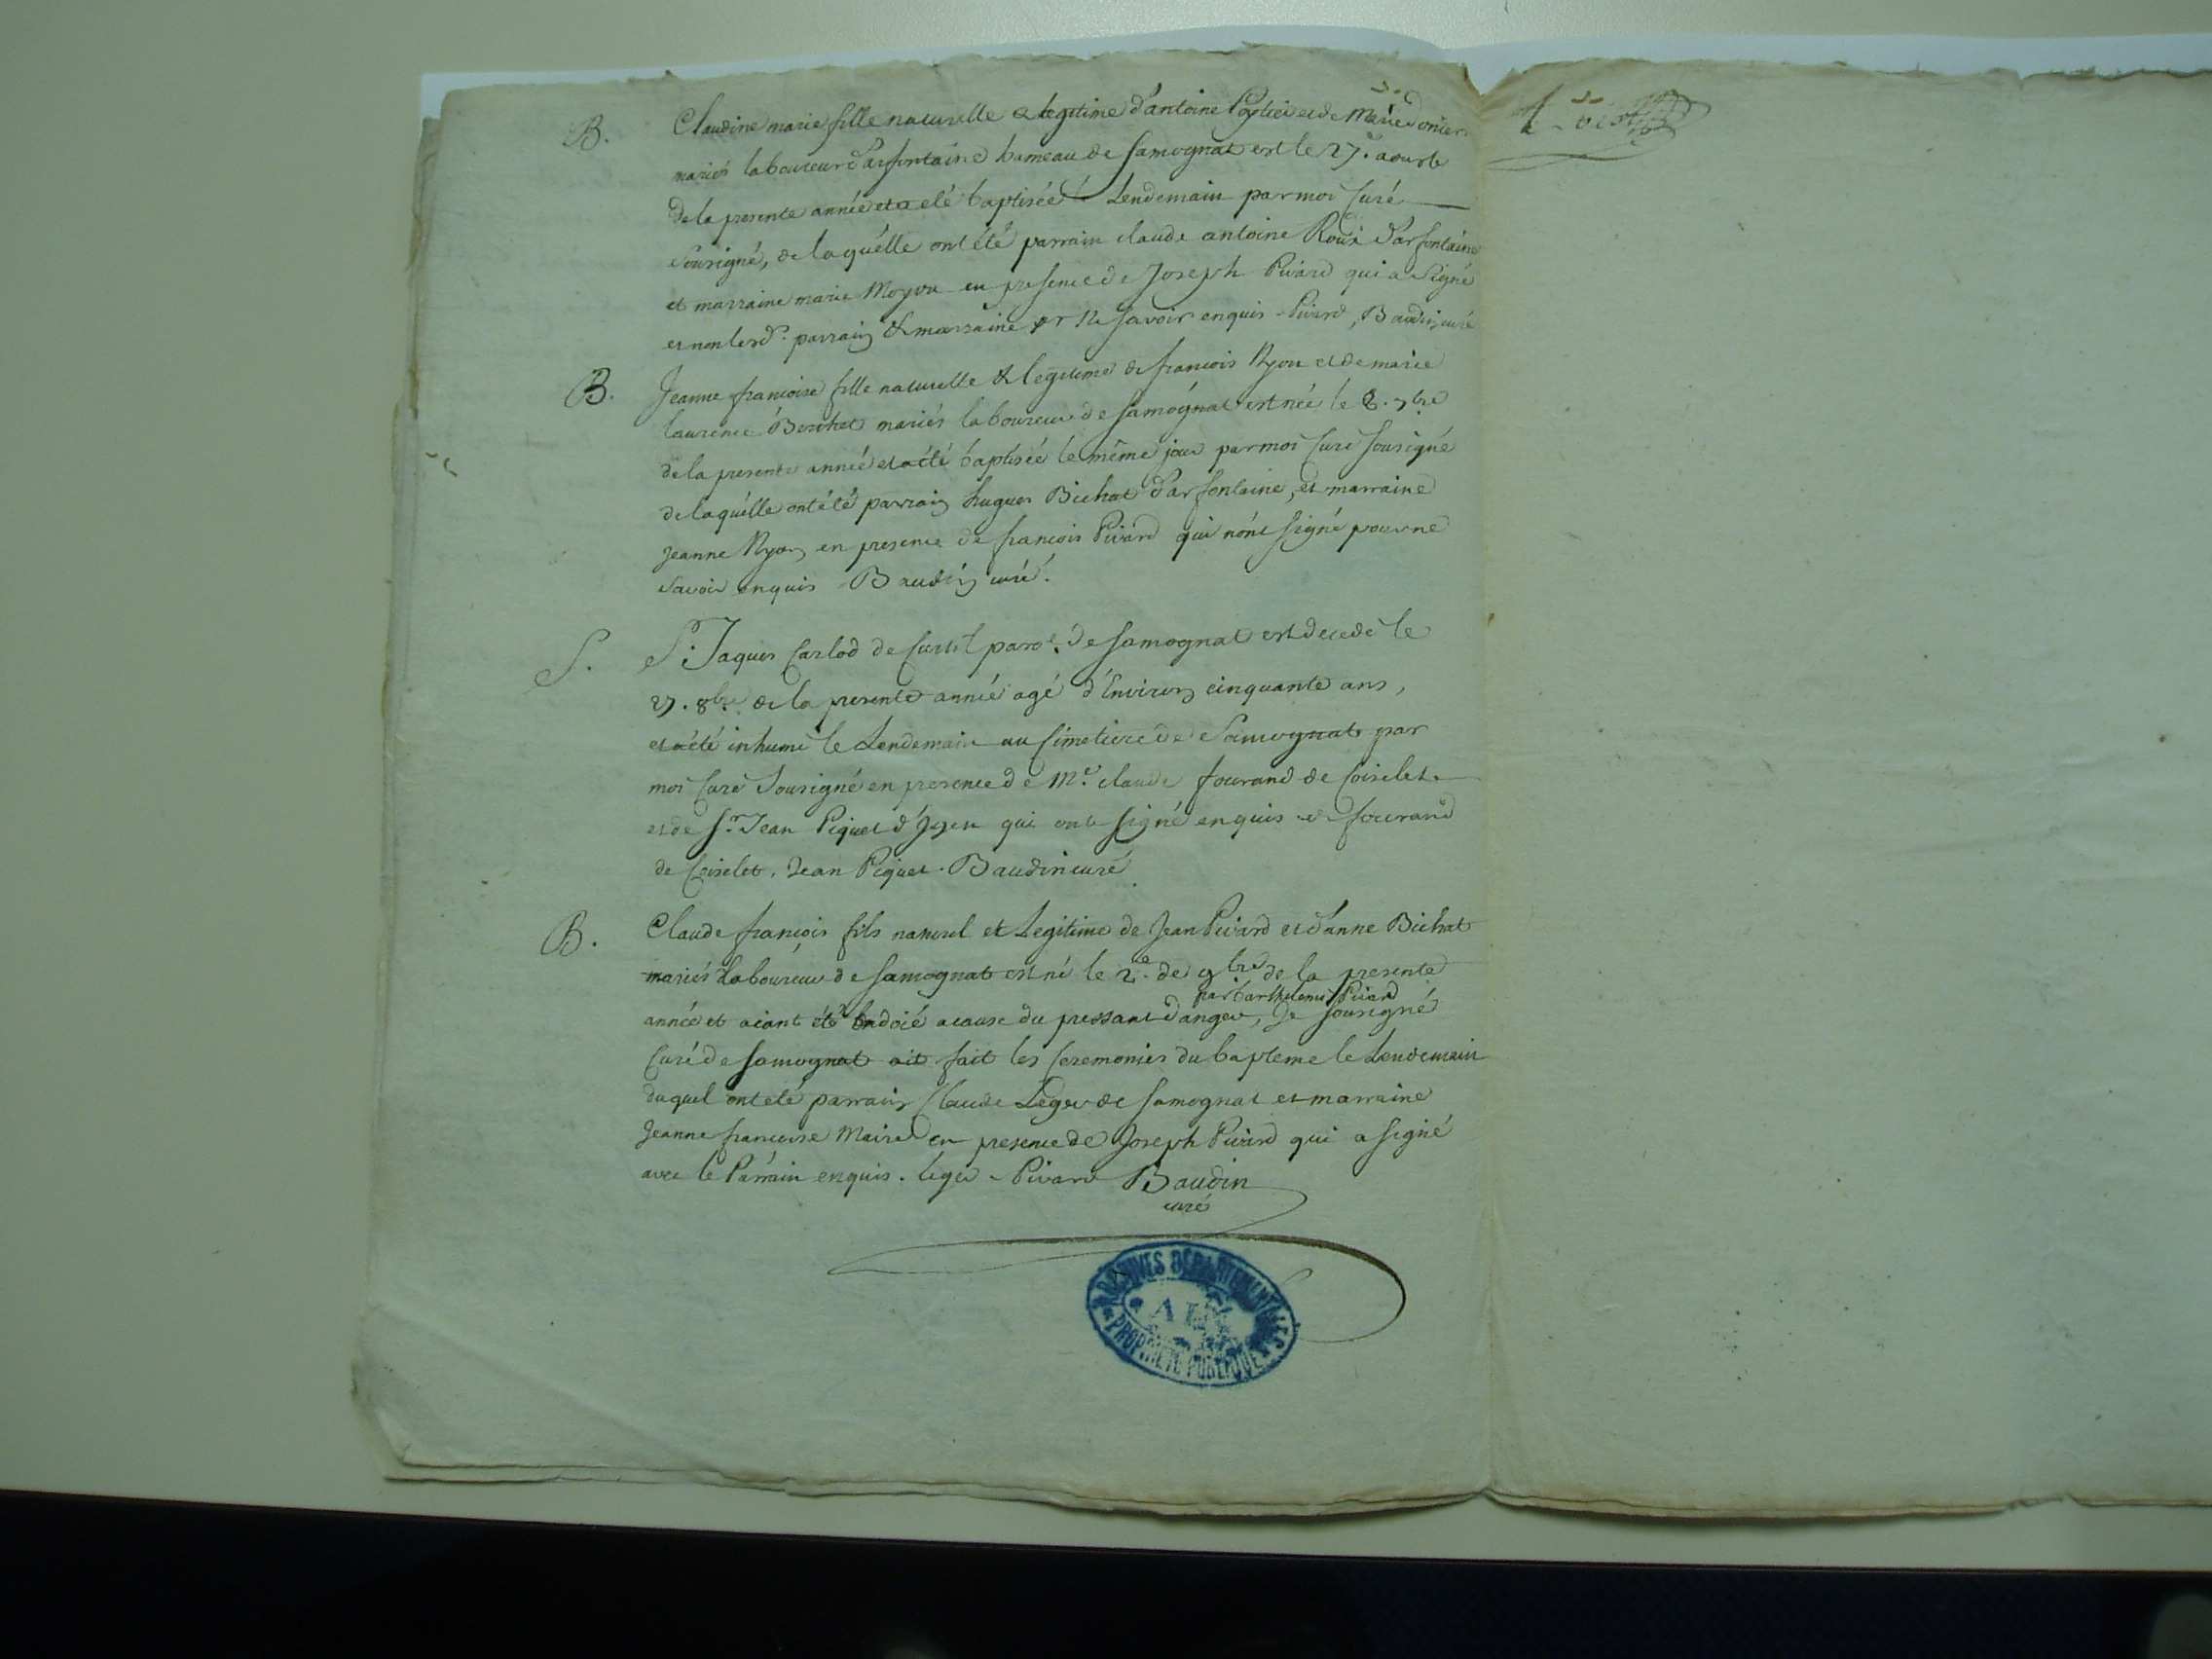 B. Claudine marie fille naturelle & legitime d'antoine et de Marie
mariés laboureur d'arfontaine hameau de Samognat est le 27. aouste
de la presente année et a eté baptisée le Lendemain par moi Curé
sousigné, de laquélle ont été parrain claude antoine Roux d'arfontaine
et marraine marie Moyon en presence de Joseph Pivard qui a Signé
et non lesd. parrain & marraine pr ne savoir enquis - Pivard, Baudin curé
B. Jeanne francoise fille naturelle & legitime de francois Ryon et de marie
laurence Berchet mariés laboureur de samognat est née le 8. 7bre
de la presente année et a été baptisée le même jour par moi Curé sousigné
de laquélle ont été parrain hugues Bichat d'arfontaine, et marraine
Jeanne Ryon en presence de francois Pivard qui n'ont signé pour ne
savoir enquis Baudin curé.
S. Sr. Jaques Carlod de parse. de samognat est decedé le
27. 8bre de la presente année agé d'Environ cinquante ans,
et a été inhumé le Lendemain au Cimetiere de Samognat par
moi Curé Sousigné en presence de Me. claude fourand de Coiselet
et de Sr. Jean Piquet d' qui ont signé enquis fourand
de Coiselet. Jean Piquet. Baudin curé
B. Claude francois fils naturel et Legitime de Jean Pivard et d'anne Bichat
mariés Laboureur de samognat est né le 2e. de 9bre de la presente
par barthelemi Pivard
année et aiant été Endoié a cause du pressant danger, Je sousigné
Curé de samognat ait fait les Ceremonies du bapteme le Lendemain
duquel ont eté parrain Claude Leger de samognat et marraine
Jeanne francoise Maire en presence de Joseph Pivard qui a signé
avec le Parrain enquis. leger - Pivard Baudin
curé
ARCHIVES DÉPARTEMENTALES
AIN
PROPRIÉTÉ PUBLIQUE